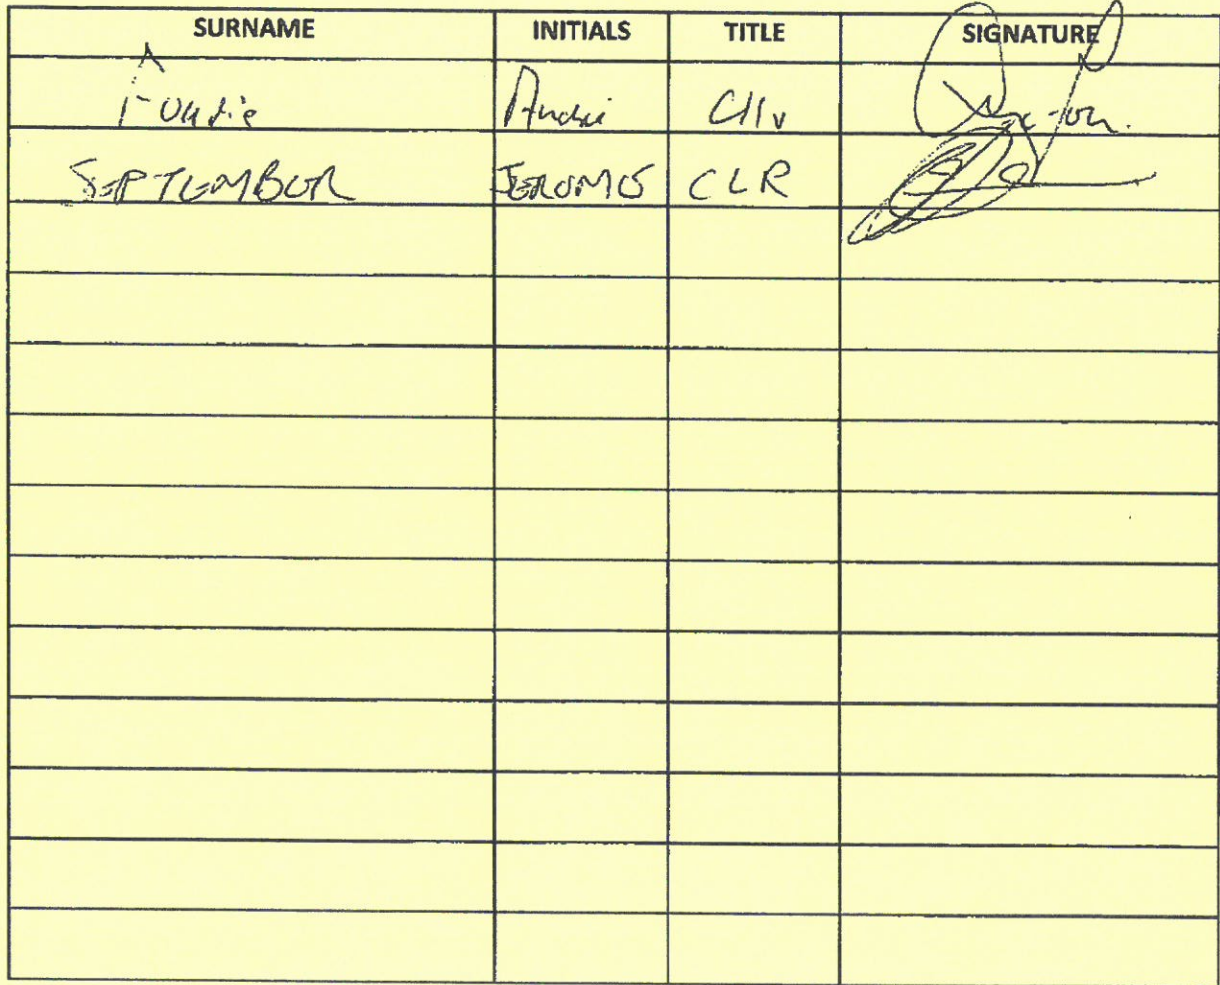 SURNAME INITIALS TITLE SIGNATURE
Andrè Cllr
SEPTEMBER JEROME CLR